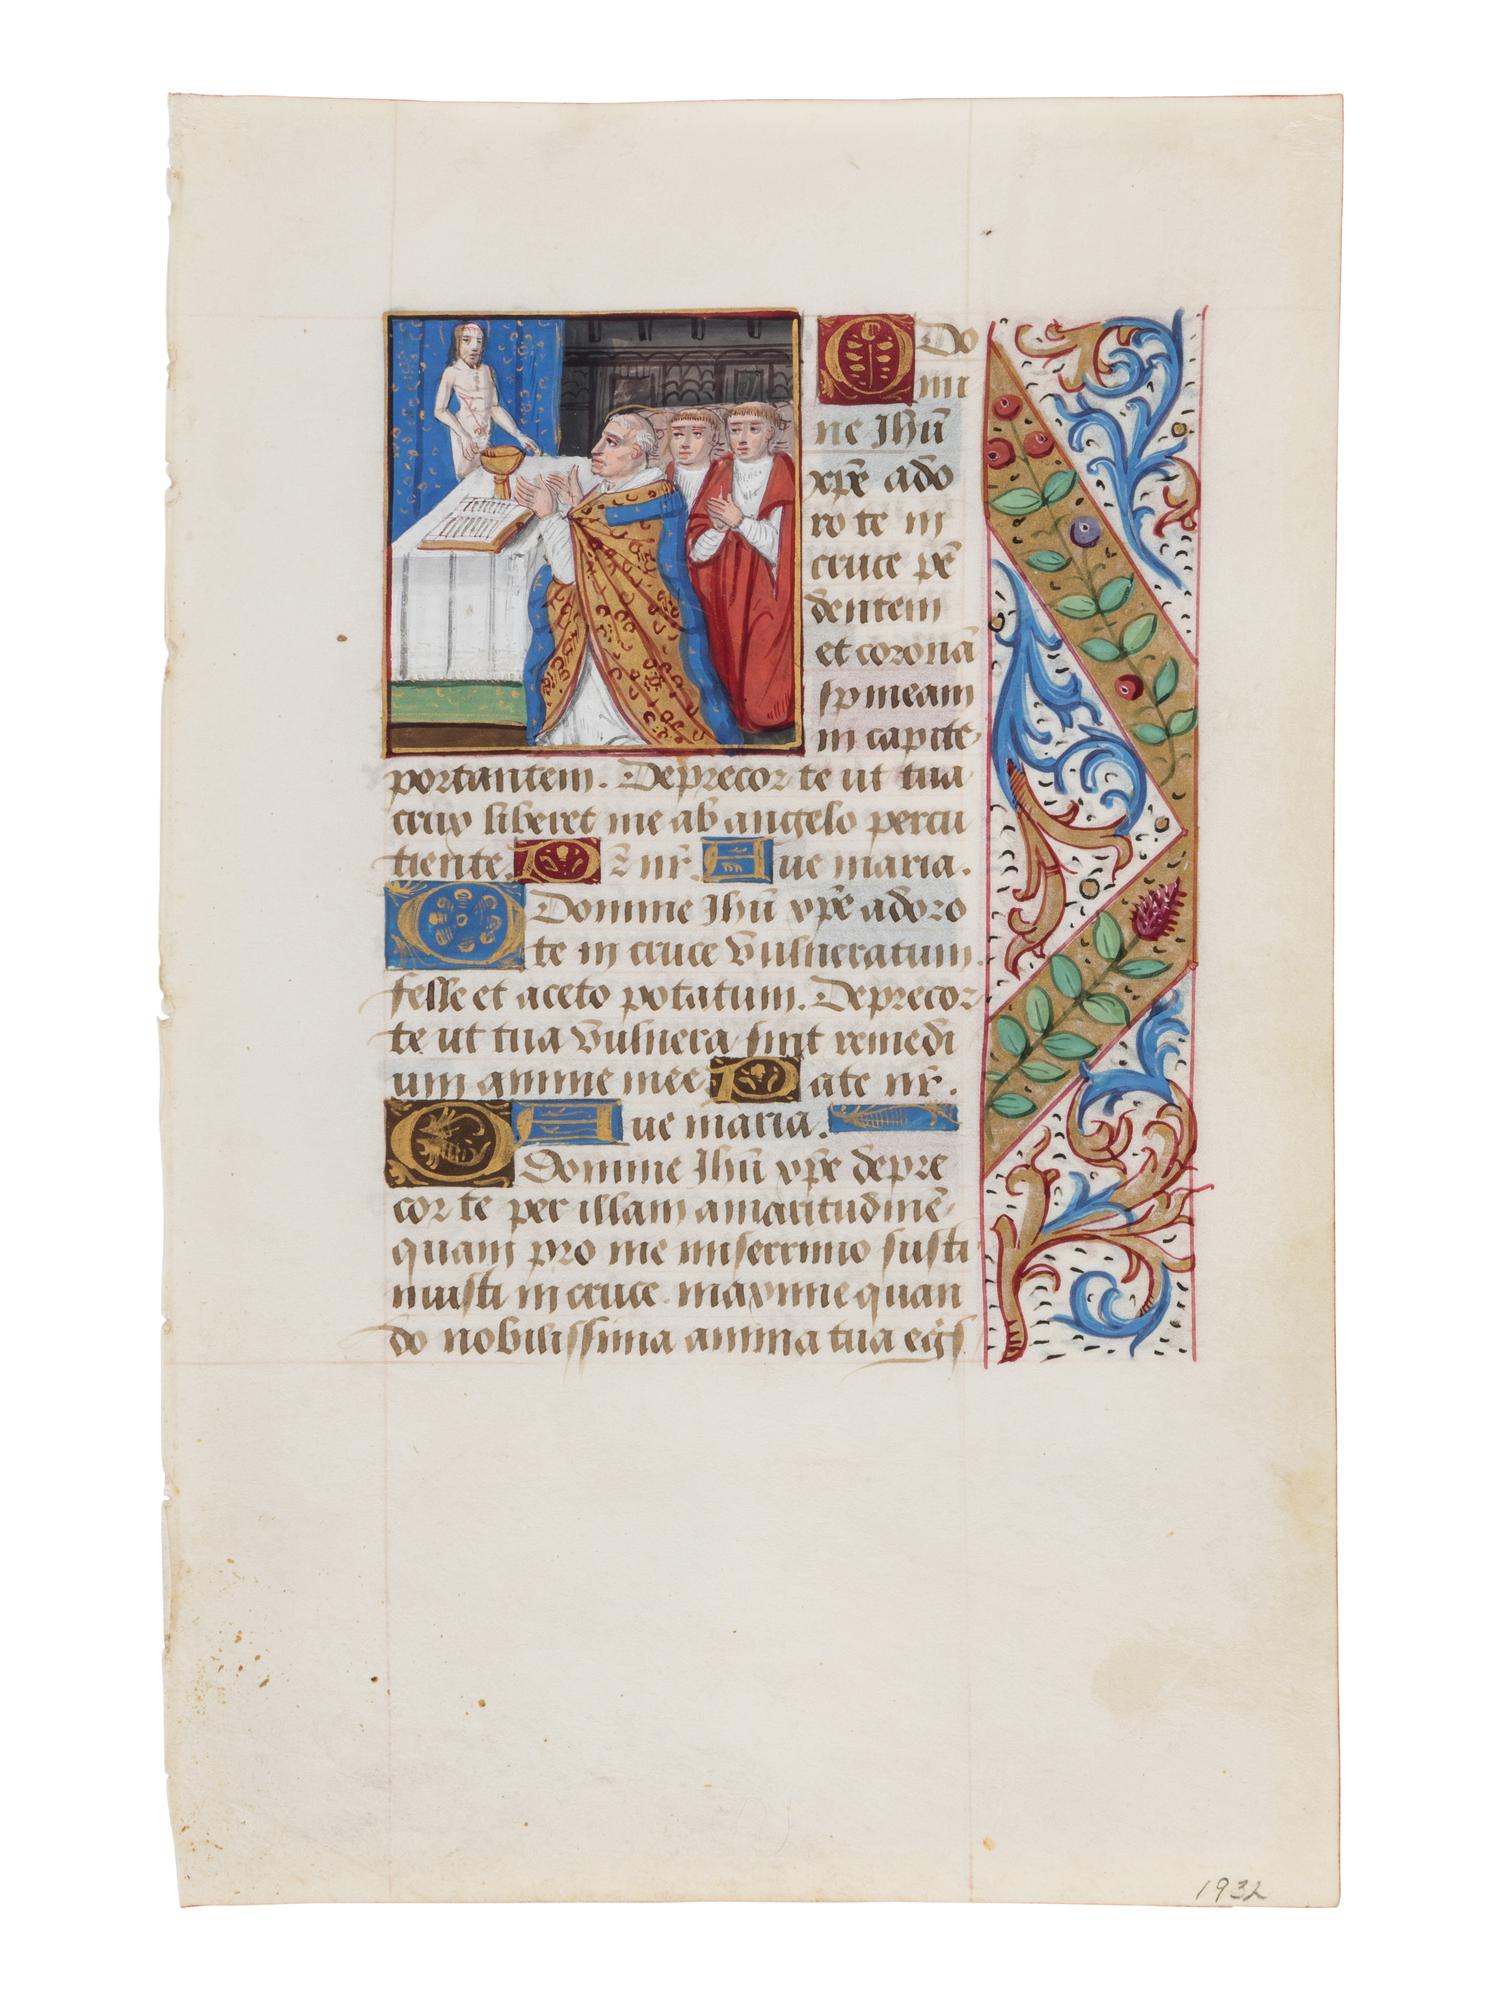 O Do
mi
ne Jhũ
xp̃e ado
ro te in
cruce pẽ
dentem
et coronã
spineam
in capite
portantem. Deprecor te ut tua
crux liberet me ab angelo percu
tiente. P̃r nr̃. Aue maria.
O Domine Jhũ xp̃e adoro
te in cruce vulneratum
felle et aceto potatum. Deprecor
te ut tua vulnera sint remedi
um anime mee. Pate nr̃.
Aue maria.
O Domine Jhũ xp̃e depre
cor te per illam amaritudinẽ
quam pro me miserrimo susti
nuisti in cruce. maxime quan
do nobilissima anima tua egr̃s
1932